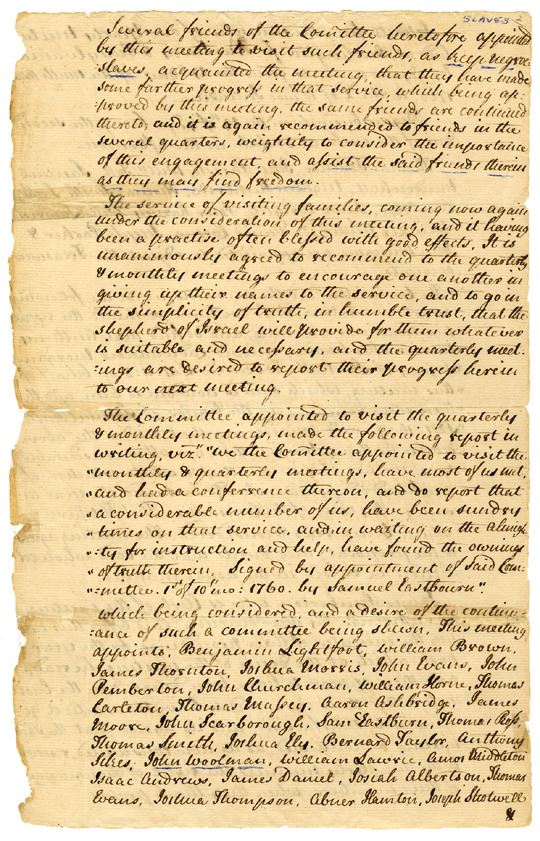 SLAVES
Several friends of the Comittee heretofore appointed
by this meeting to visit such friends, as keep negroe
slaves, acquainted the meeting, that they have made
some farther progress in that service, which being ap-
:proved by this meeting, the same friends are continued
thereto, and it is again recommended to friends in the
several quarters, weightily to consider the importance
of this engagement, and assist the said friends therein
as they may find freedom.
The service of visiting families, coming now again
under the consideration of this meeting, and it having
been a practise often blessed with good effects, It is
unanimously agreed to recommend to the quarterly
& monthly meetings to encourage one another in
giving up their names to the service, and to go in
the simplicity of truth, in humble trust, that the
shepherd of Israel will provide for them whatever
is suitable and necessary, and the quarterly meet-
:ings are desired to report their progress herein
to our next meeting.
The Committee appointed to visit the quarterly
& monthly meetings, made the following report in
writing, viz.t "We the Comittee appointed to visit the
"monthly & quarterly meetings, have most of us met,
"and had a conference thereon, and do report that
"a considerable number of us, have been sundry
"times on that service, and in waiting on the almigh-
"ty for instruction and help, have found the ownings
"of truth therein, Signed by appointment of said Com-
"mittee. 1st of 10th mo: 1760. by Samuel Eastbourn".
which being considered, and a desire of the continu-
:ance of such a committee being shewn, This meeting
appoints, Benjamin Lightfoot, William Brown,
James Thornton, Joshua Morris, John Evans, John
Pemberton, John Churchman, William Horne, Thomas
Carleton, Thomas Massey, Aaron Ashbridge, James
Moore, John Scarborough, Sam Eastburn, Thomas Ross,
Thomas Smith, Joshua Ely, Bernard Taylor, Anthony
Sikes, John Woolman, William Lawrie, Amos Middleton
Isaac Andrews, James Daniel, Josiah Albertson, Thomas
Evans, Joshua Thompson, Abner Hamton, Joseph Shotwell
&